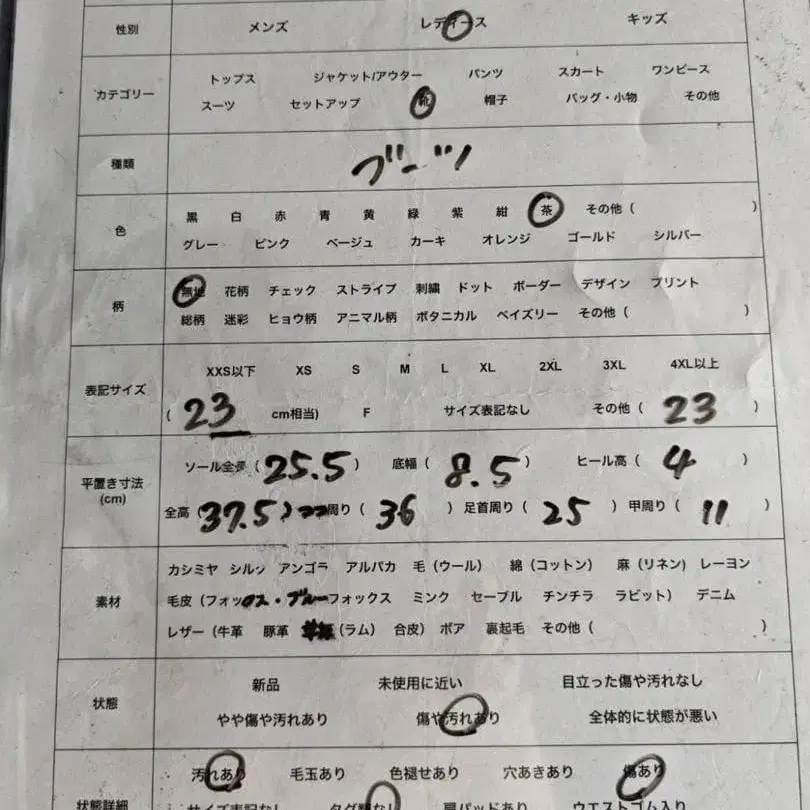 性別 メンズ レディース キッズ
カテゴリー トップス ジャケット/アウター パンツ スカート ワンピース
スーツ セットアップ 靴 帽子 バッグ・小物 その他
種類 ブーツ
色 黒 白 赤 青 黄 緑 紫 紺 茶 その他 ( )
グレー ピンク ベージュ カーキ オレンジ ゴールド シルバー
柄 無地 花柄 チェック ストライプ 刺繍 ドット ボーダー デザイン プリント
総柄 迷彩 ヒョウ柄 アニマル柄 ボタニカル ペイズリー その他 ( )
表記サイズ XXS以下 XS S M L XL 2XL 3XL 4XL以上
( 23 cm相当) F サイズ表記なし その他 ( 23 )
平置き寸法 (cm) ソール全長 ( 25.5 ) 底幅 ( 8.5 ) ヒール高 ( 4 )
全高 ( 37.5 ) 周り ( 36 ) 足首周り ( 25 ) 甲周り ( 11 )
素材 カシミヤ シルク アンゴラ アルパカ 毛（ウール） 綿（コットン） 麻（リネン） レーヨン
毛皮（フォックス・ブルーフォックス ミンク セーブル チンチラ ラビット） デニム
レザー（牛革 豚革 （ラム） 合皮） ボア 裏起毛 その他 ( )
状態 新品 未使用に近い 目立った傷や汚れなし
やや傷や汚れあり 傷や汚れあり 全体的に状態が悪い
状態詳細 汚れあり 毛玉あり 色褪せあり 穴あきあり 傷あり
サイズ表記なし タグ類なし 肩パッドあり ウエストゴム入り